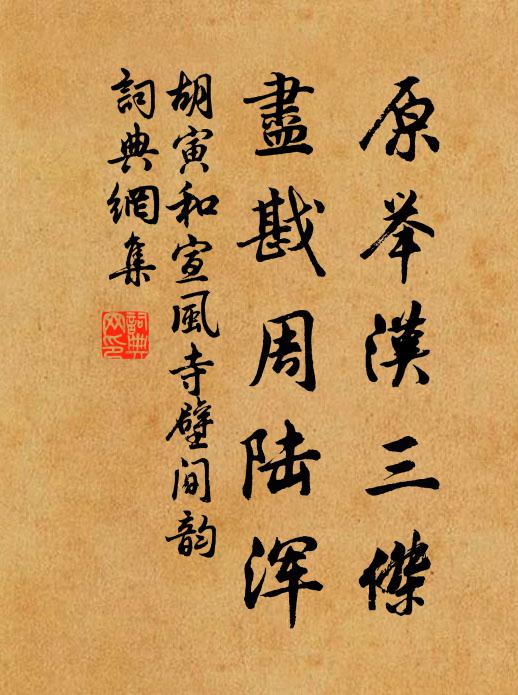 原举漢三傑
盡戡周陆浑
胡寅和宣風寺壁间韵
詞典網集
詞典网印